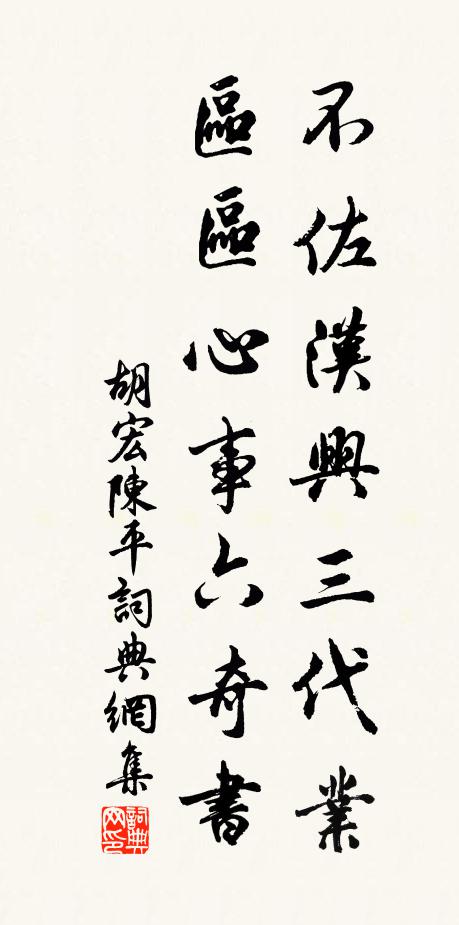 不佐漢興三代業
區區心事六奇書
胡宏陳平詞典網集
詞典网印